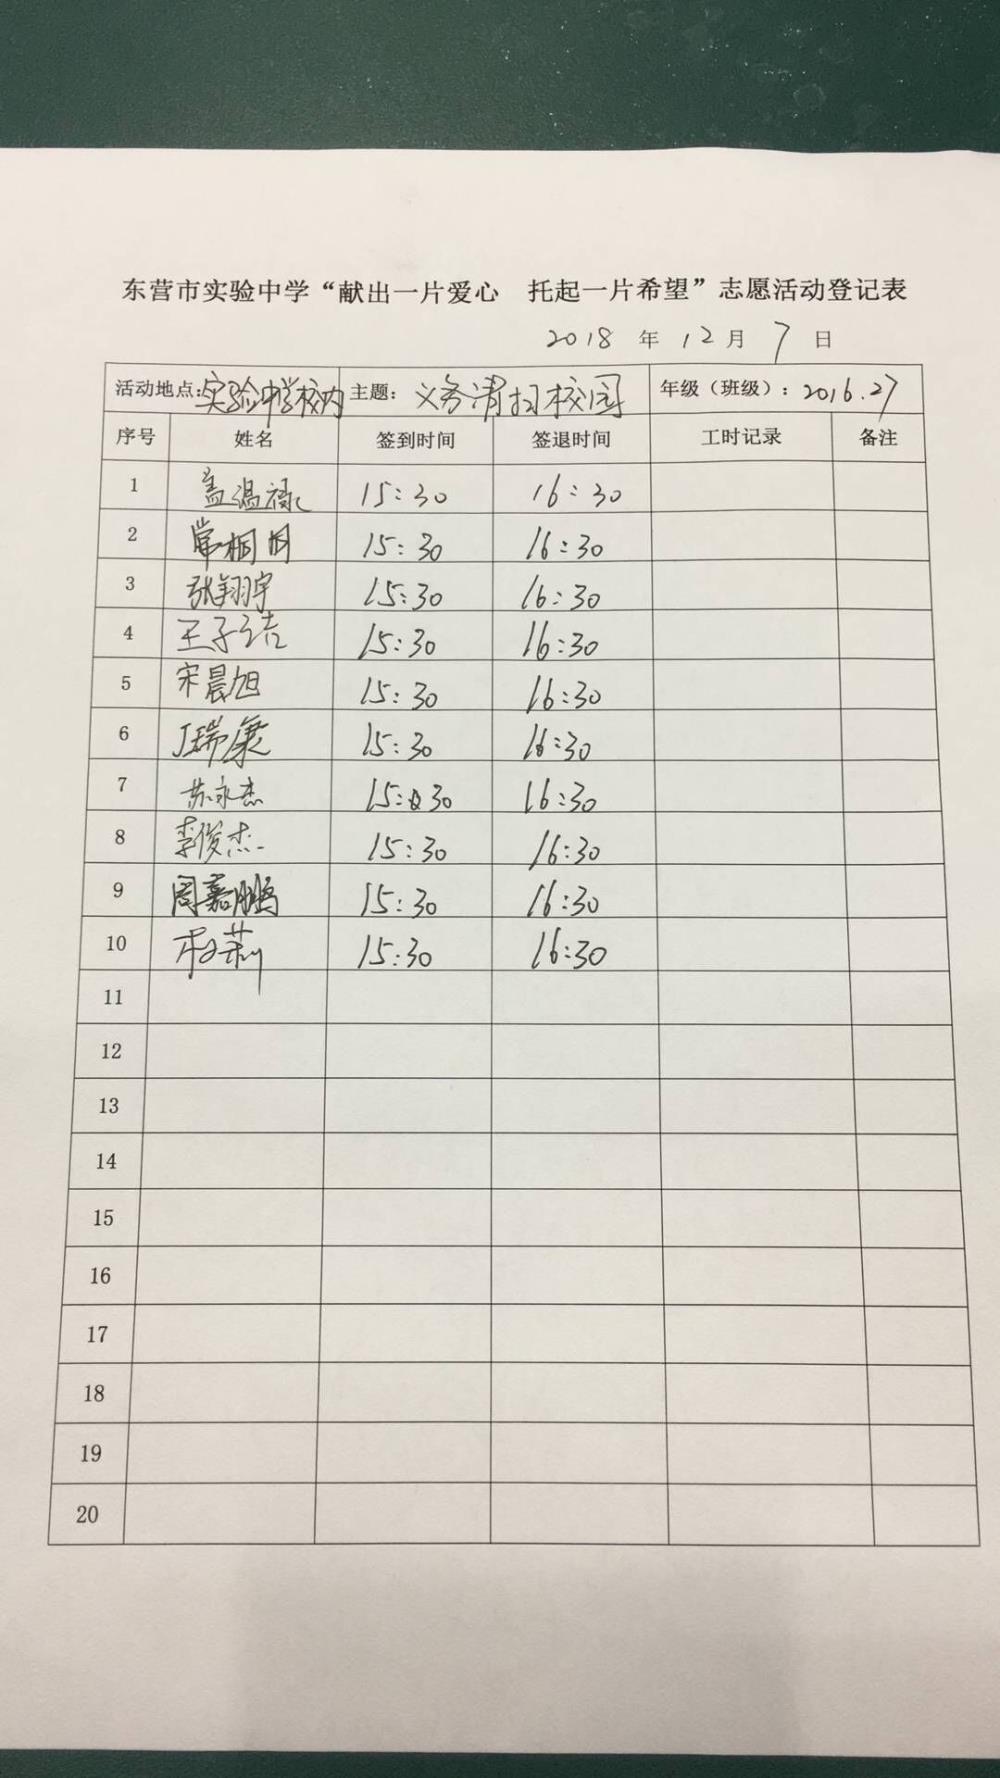 东营市实验中学“献出一片爱心　托起一片希望”志愿活动登记表
2018 年 12 月 7 日
活动地点:实验中学校内 主题: 义务清扫校园 年级（班级）: 2016.27
序号 姓名 签到时间 签退时间 工时记录 备注
1 盖温禄 15:30 16:30
2 常桐 15:30 16:30
3 张翔宇 15:30 16:30
4 王子 15:30 16:30
5 宋晨旭 15:30 16:30
6 丁瑞康 15:30 16:30
7 苏永杰 15:30 16:30
8 李俊杰 15:30 16:30
9 周嘉鹏 15:30 16:30
10 莉 15:30 16:30
11
12
13
14
15
16
17
18
19
20